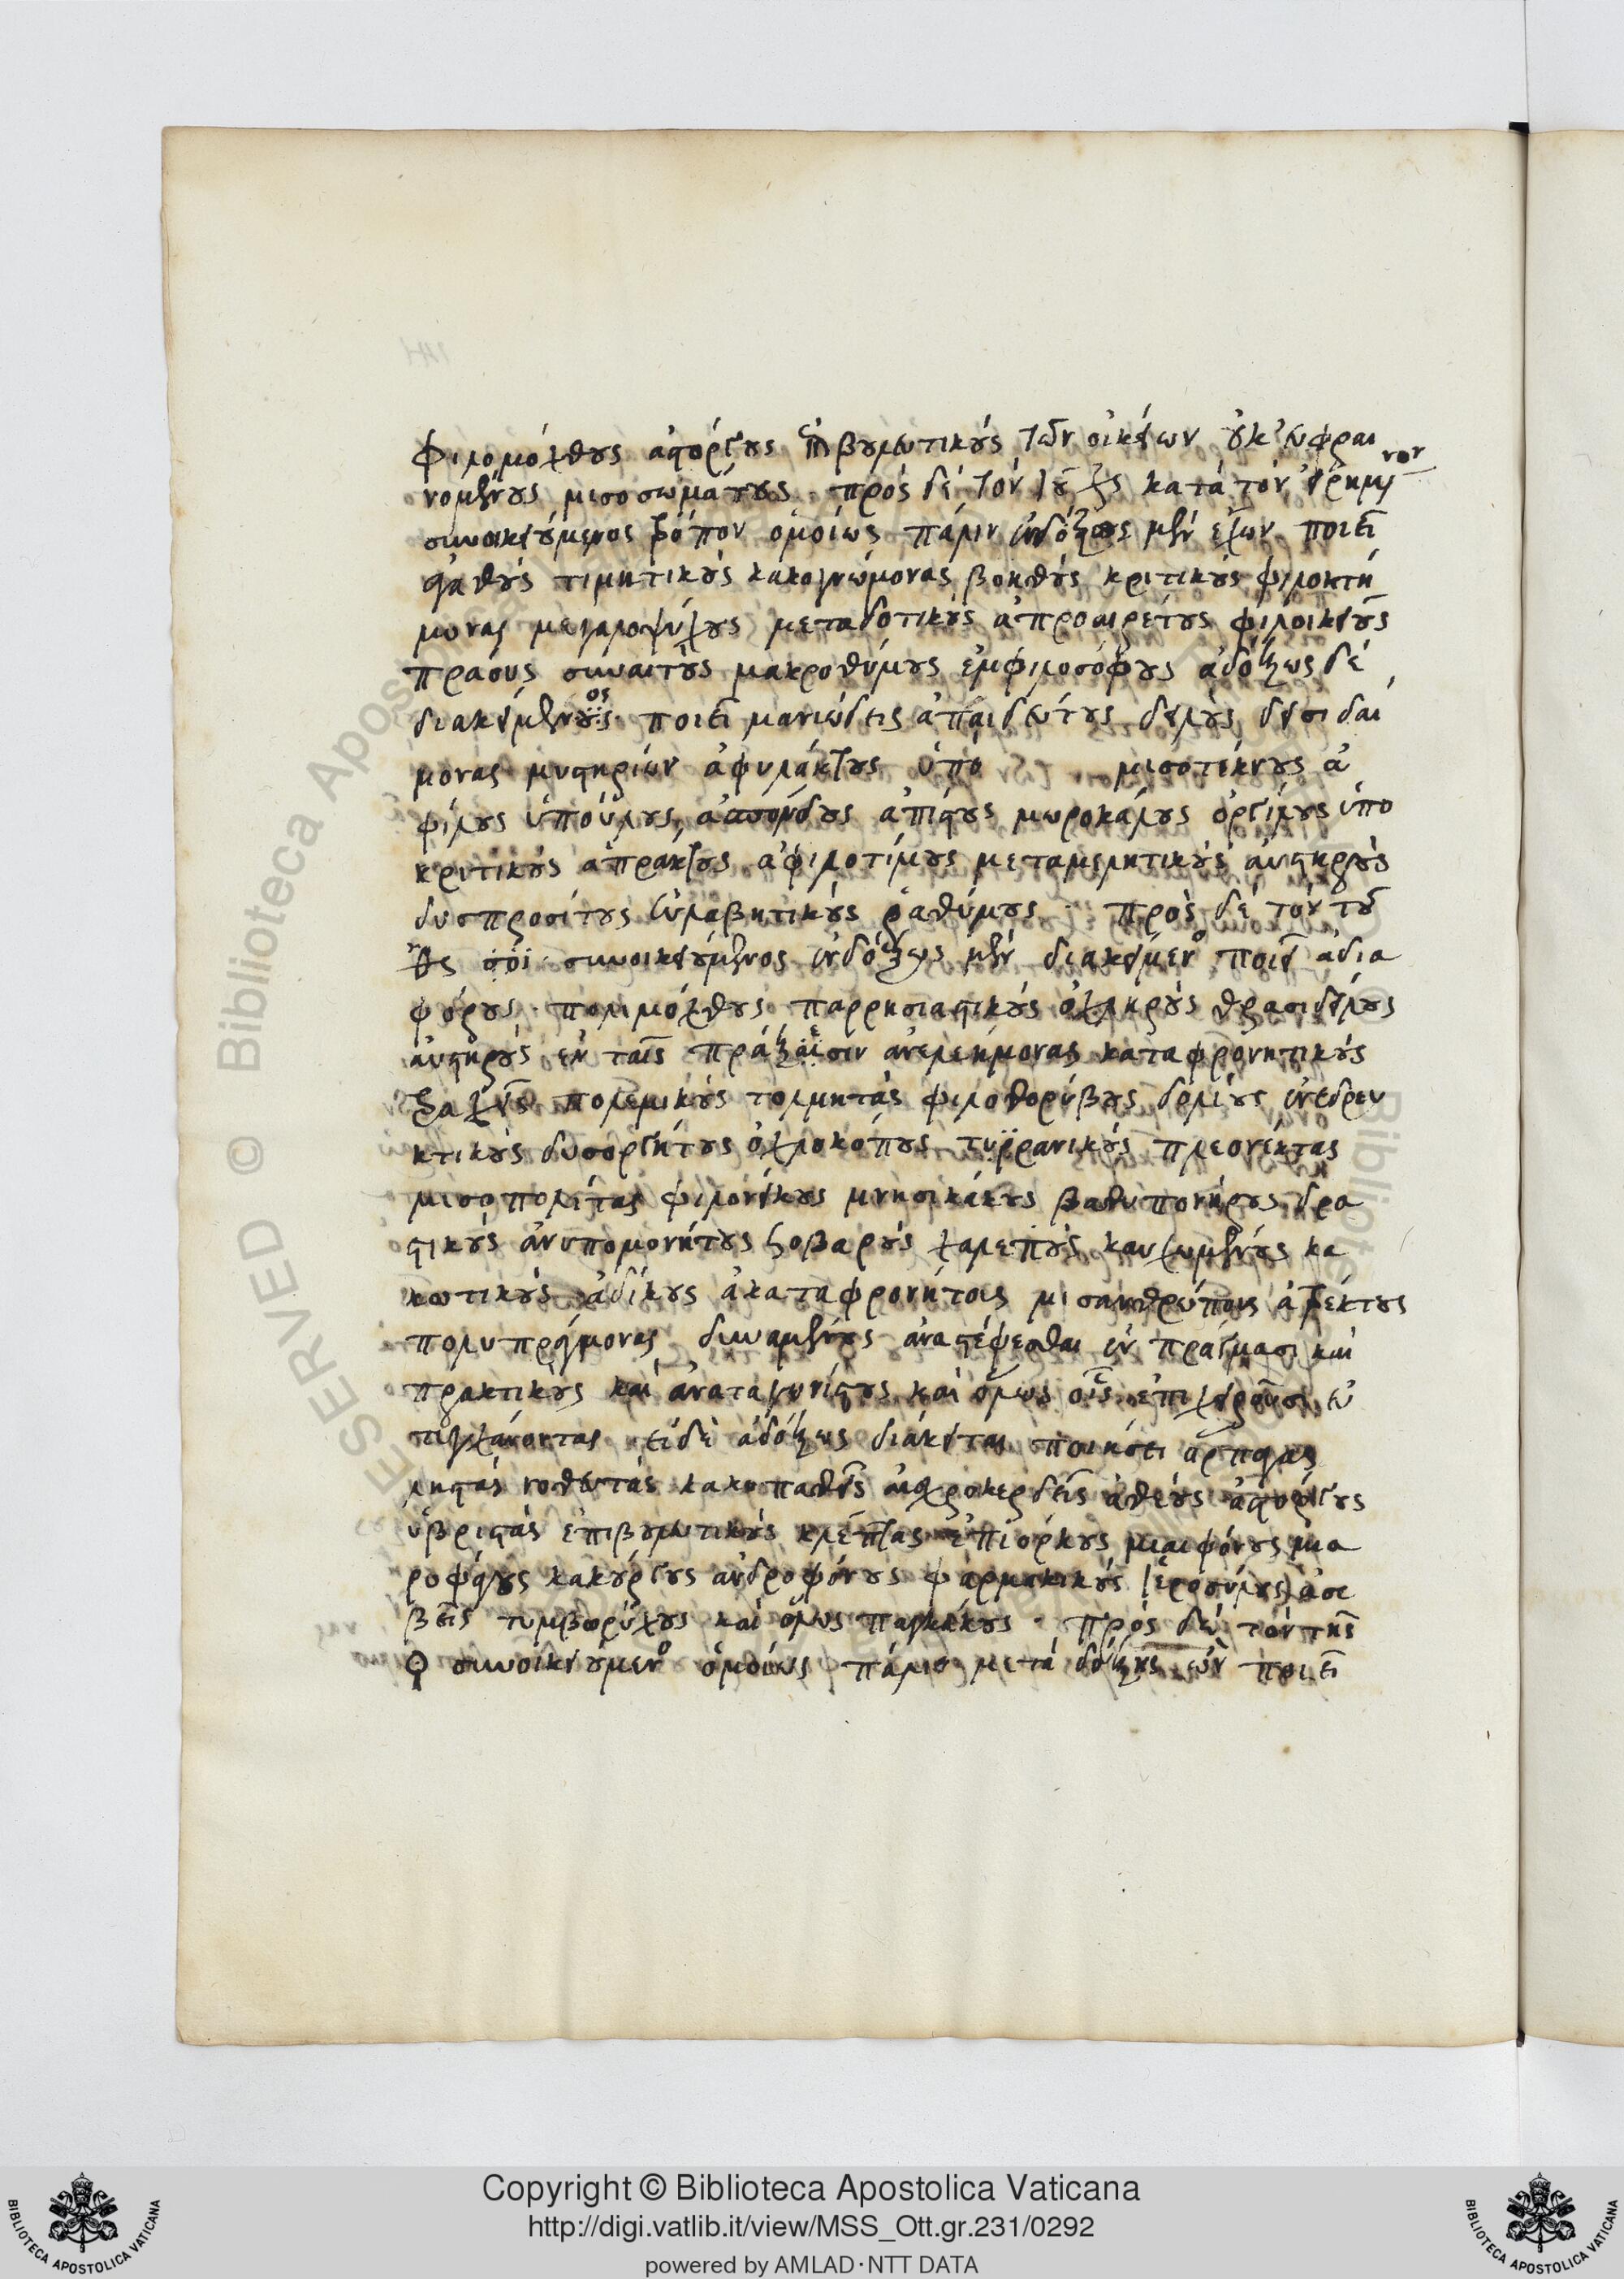 φιλομόχθους ἀστόργους ἐπιβουλευτικοὺς τῶν οἰκείων οὐκ εὐφραι
νομένους μισοσωμάτους. πρὸς δὲ τὸν τοῦ κατὰ τὸν εἰρημένον
συνοικειούμενος τρόπον ὁμοίως πάλιν ἐνδόξως μὲν ἔχων ποιεῖ
ἀγαθοὺς τιμητικοὺς κακογνώμονας βοηθοὺς κριτικοὺς φιλοκτή
μονας μεγαλοψύχους μεταδοτικοὺς ἀπροαιρέτους φιλοικείους
πράους συναιτους μακροθύμους ἐμφιλοσόφους ἀδόξως δὲ
διακείμενος ποιεῖ μανιώδεις ἀπαιδεύτους δειλοὺς δεισιδαί
μονας μυστηρίων ἀφυλάκτους ὑπὸ μισοτέκνους ἀ
φίλους ὑπούλους, ἀσπόνδους ἀπίστους μωροκάλους ὀργίλους ὑπο
κριτικοὺς ἀπράκτους ἀφιλοτίμους μεταμελητικοὺς αὐστηροὺς
δυσπροσίτους εὐλαβητικοὺς ῥαθύμους. πρὸς δὲ τὸν τοῦ
συνοικειούμενος ἐνδόξως μὲν διακείμενος ποιεῖ ἀδια
φόρους πολυμόχθους παρρησιαστικοὺς ὀχληροὺς θρασυδείλους
αὐστηροὺς ἐν ταῖς πράξεσιν ἀνελεήμονας καταφρονητικοὺς
τραχεῖς πολεμικοὺς τολμητὰς φιλοθορύβους δολίους ἐνεδρευ
κτικοὺς δυσοργήτους ὀχλοκόπους τυραννικοὺς πλεονέκτας
μισοπολίτας φιλονείκους μνησικάκους βαθυπονήρους δρα
στικοὺς ἀνυπομονήτους σοβαροὺς χαλεποὺς καυχωμένους κα
κωτικοὺς ἀδίκους ἀκαταφρονήτοις μισανθρώπους ἀτρέκτους
πολυπράγμονας δυναμένους ἀναστρέφεσθαι ἐν πράγμασι καὶ
πρακτικοὺς καὶ ἀνατ αγωνίστους καὶ ὅμως οἷς ἐπιχειροῦσι εὐ
τυγχάνοντας εἰ δὲ ἀδόξως διάκειται ποιήσει ἅρπαγας
λῃστὰς νοθευτὰς κακοπαθεῖς αἰσχροκερδεῖς ἀθέους ἀστόργους
ὑβριστὰς ἐπιβουλευτικοὺς κλέπτας ἐπιόρκους μιαιφόνους μια
ροφάγους κακούργους ἀνδροφόνους φαρμακικοὺς ἱεροσύλους ἀσε
βεῖς τυμβωρύχους καὶ ὅλως παγκάκους. πρὸς δὲ τὸν τῆς
♀ συνοικειούμενος ὁμοίως πάλιν μετὰ δόξης ὢν ποιεῖ
Copyright © Biblioteca Apostolica Vaticana
http://digi.vatlib.it/view/MSS_Ott.gr.231/0292
powered by AMLAD·NTT DATA